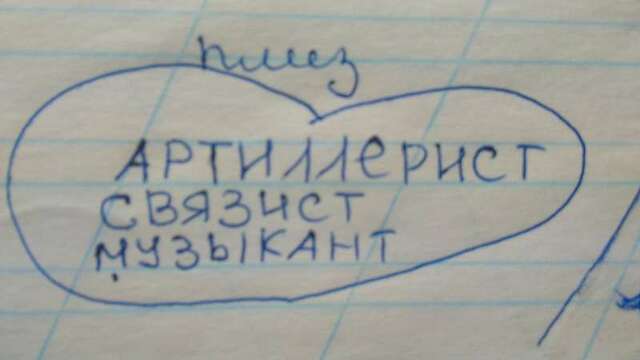 плиз
АРТИЛЛЕРИСТ
СВЯЗИСТ
МУЗЫКАНТ